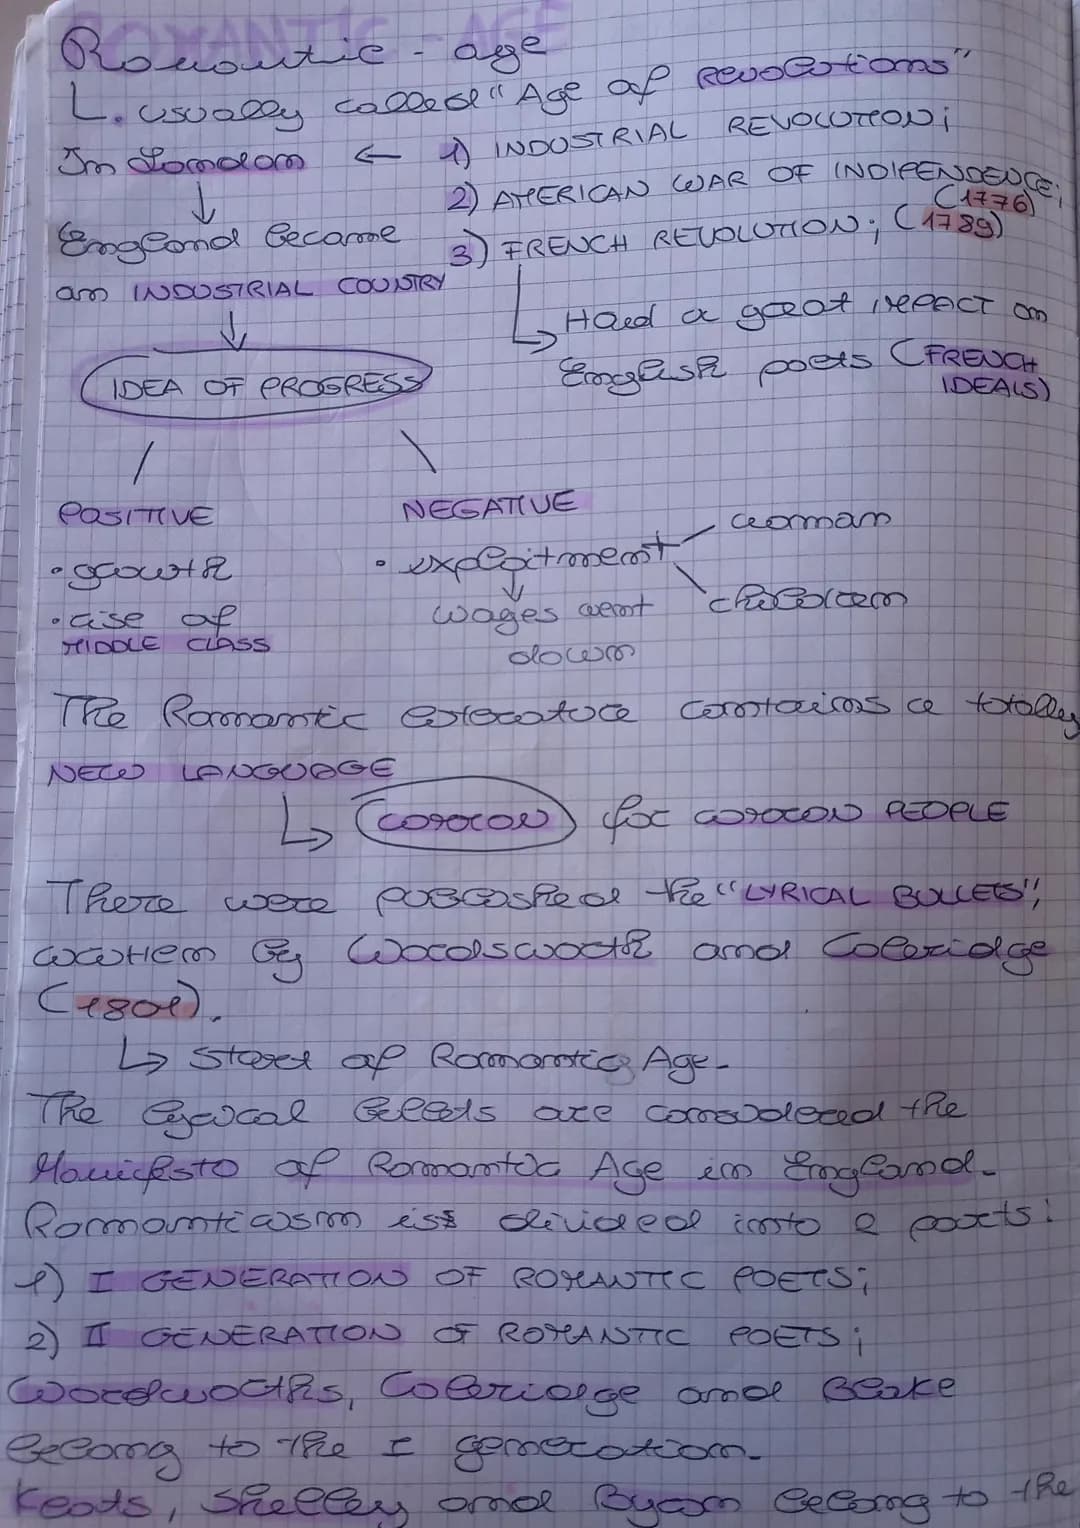 Romantic - age
usually called "Age of Revolutions"
In London ← 1) INDUSTRIAL REVOLUTION;
2) AMERICAN WAR OF INDIPENDENCE;
(1776)
England became
3) FRENCH REVOLUTION; (1789)
an INDUSTRIAL COUNTRY
Had a great impact on
English poets (FRENCH
IDEALS)
IDEA OF PROGRESS
POSITIVE
NEGATIVE
• growth
• rise of
MIDDLE CLASS
• exploitment
woman
children
wages went
down
The Romantic literature contains a totally
NEW LANGUAGE
COMMON for COMMON PEOPLE
There were published the "LYRICAL BALLETS",
written by Wordsworth and Coleridge
(1801).
Start of Romantic Age.
The lyrical ballads are considered the
Manifesto of Romantic Age in England.
Romanticism is divided into 2 parts:
1) I GENERATION OF ROMANTIC POETS;
2) II GENERATION OF ROMANTIC POETS;
Wordworths, Coleridge and Blake
belong to the I generation.
Keats, Shelley and Byron belong to the